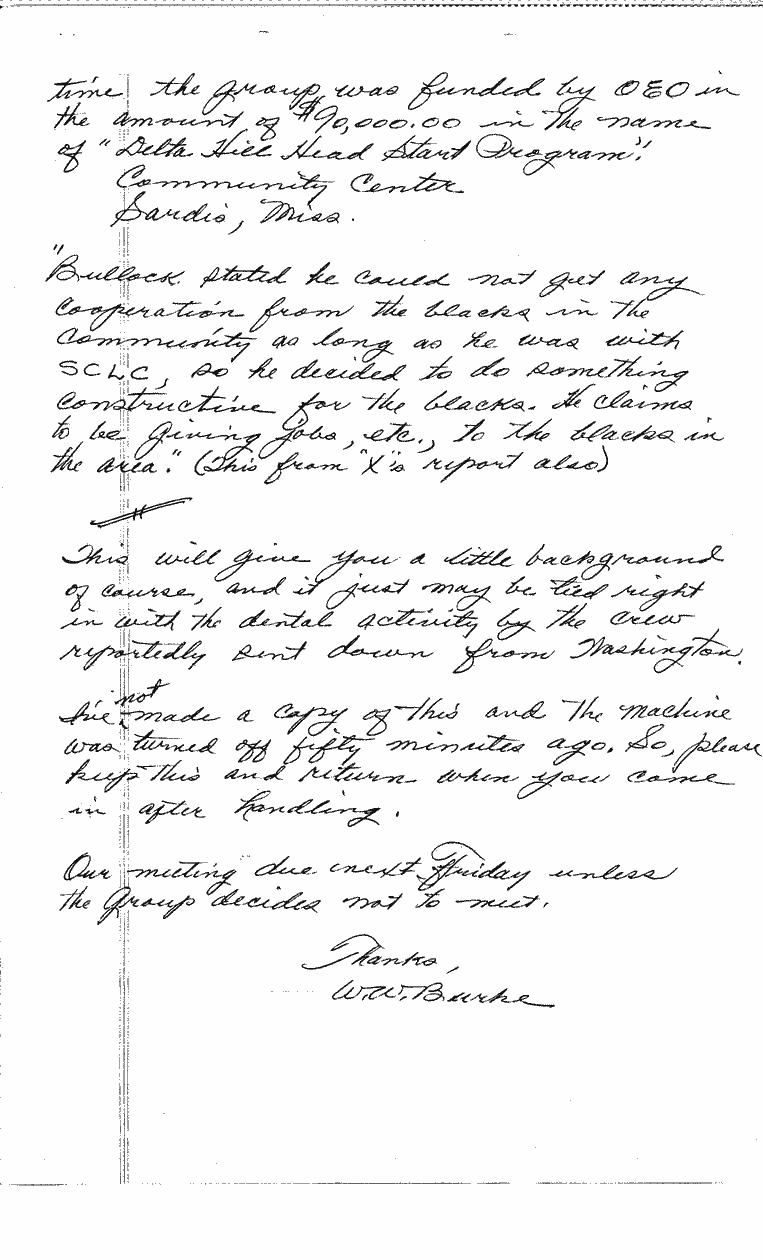 time the group was funded by OEO in
the amount of $90,000.00 in the name
of "Delta Hill Head Start Program".
Community Center
Sardis, Miss.
"Bullock stated he could not get any
cooperation from the blacks in the
community as long as he was with
SCLC, so he decided to do something
constructive for the blacks. He claims
to be giving jobs, etc., to the blacks in
the area." (This from "X"'s report also)
#
This will give you a little background
of course, and it just may be tied right
in with the dental activity by the crew
reportedly sent down from Washington.
not
I've made a copy of this and the machine
was turned off fifty minutes ago. So, please
keep this and return when you come
in after handling.
Our meeting due next Friday unless
the Group decides not to meet.
Thanks,
W.W. Burke